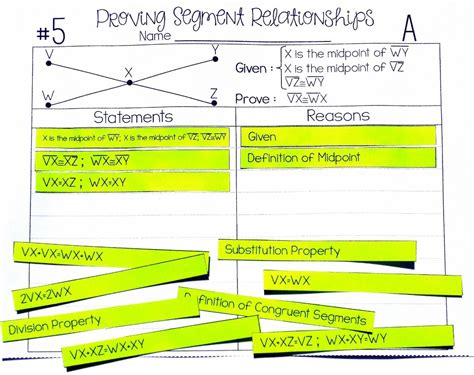 #5
PROVING SEGMENT RELATIONSHIPS
A
Name
V
Y
X
W
Z
Given: X is the midpoint of W̅Y̅
X is the midpoint of V̅Z̅
V̅Z̅≅W̅Y̅
Prove: V̅X̅≅W̅X̅
Statements
Reasons
X is the midpoint of W̅Y̅; X is the midpoint of V̅Z̅; V̅Z̅≅W̅Y̅
Given
V̅X̅≅X̅Z̅; W̅X̅≅X̅Y̅
Definition of Midpoint
VX=XZ; WX=XY
VX+VX=WX+WX
Substitution Property
VX=WX
2VX=2WX
finition of Congruent Segments
Division Property
VX+XZ=WX+XY
VX+XZ=VZ; WX+XY=WY